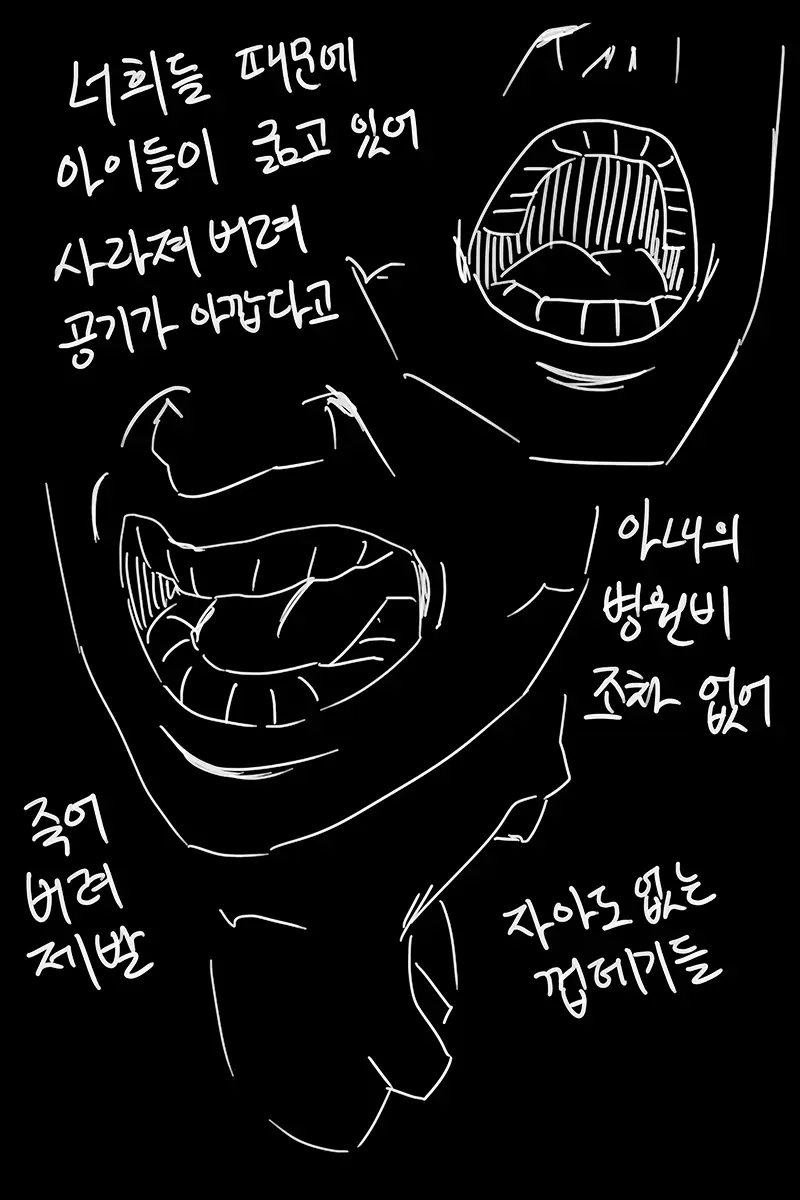 너희들 때문에
아이들이 굶고 있어
사라져 버려
공기가 아깝다고
아내의
병원비
조차 없어
죽어
버려
제발
자아도 없는
껍데기들